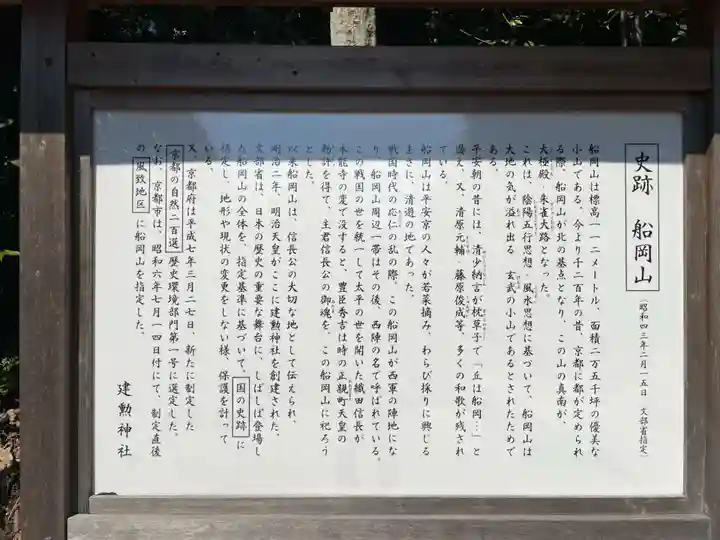 史跡 船岡山
(昭和四三年二月一五日 文部省指定)
船岡山は標高一一二メートル、面積二万五千坪の優美な
小山である。今より千二百年の昔、京都に都が定められ
る際、船岡山が北の基点となり、この山の真南が、
大極殿・朱雀大路となった。
これは、陰陽五行思想、風水思想に基づいて、船岡山は
大地の気が溢れ出る 玄武の小山であるとされたためで
ある。
平安朝の昔には、清少納言が枕草子で「丘は船岡…」と
讃え、又、清原元輔、藤原俊成等、多くの和歌が残され
ている。
船岡山は平安京の人々が若菜摘み、わらび採りに興じる
まさに、清遊の地であった。
戦国時代の応仁の乱の際、この船岡山が西軍の陣地にな
り、船岡山周辺一帯はその後、西陣の名で呼ばれている。
この戦国の世を統一して太平の世を開いた織田信長が
本能寺の変で没すると、豊臣秀吉は時の正親町天皇の
勅許を得て、主君信長公の御魂を、この船岡山に祀ろう
とした。
以来船岡山は、信長公の大切な地として伝えられ、
明治二年、明治天皇がここに建勲神社を創建された。
文部省は、日本の歴史の重要な舞台に、しばしば登場し
た船岡山の全体を、指定基準に基づいて、国の史跡に
指定し、地形や現状の変更をしない様、保護を計って
いる。
又、京都府は平成七年三月二七日、新たに制定した
京都の自然二百選 歴史環境部門第一号に選定した。
なお、京都市は、昭和六年七月一四日付にて、制定直後
の 風致地区 に船岡山を指定した。
建勲神社